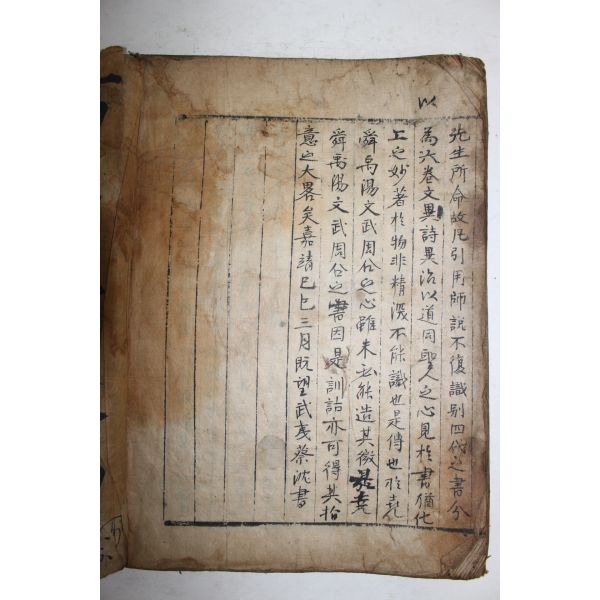 以
先生所命故凡引用師說不復識別四代之書分
為六卷文異詩異治以道同聖人之心見扵書猶化
上之妙著扵物非精深不能識也是傳也扵堯
舜禹湯文武周公之心雖未必能造其微是堯
舜禹湯文武周公之書因是訓詁亦可得其指
意之大畧矣嘉靖己巳三月旣望武夷蔡沈書